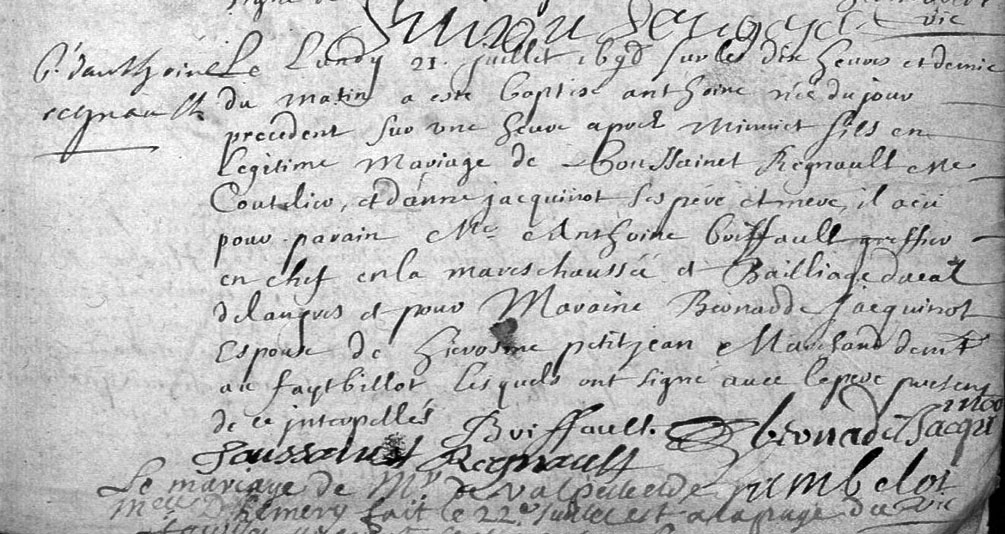 vic
b. d'anthoine
regnault
Le Lundy 21. Juillet 1698 sur les dix heures et demie
du matin a esté baptisé anthoine née du jour
precedent sur une heure apres Minuict fils en
Legitime Mariage de Toussainct Regnault Me
Coutelier, et d'anne jacquinot ses pere et mere, il a eü
pour parain Me Anthoine Briffault greffier
en chef en la mareschaussée et Bailliage ducal
de langres et pour Maraine Bernarde Jacquinot
Espouse de Hierosme petitjean Marchand demt
au faytbillot lesquels ont signé avec le pere presens
de ce interpellés
Briffault. bernarde Jacquinot
Toussainct Regnault
Jambelot
vic
Le mariage de Mr de Valpelle de
Melle D'hemery fait le 22e Juillet est a la page du